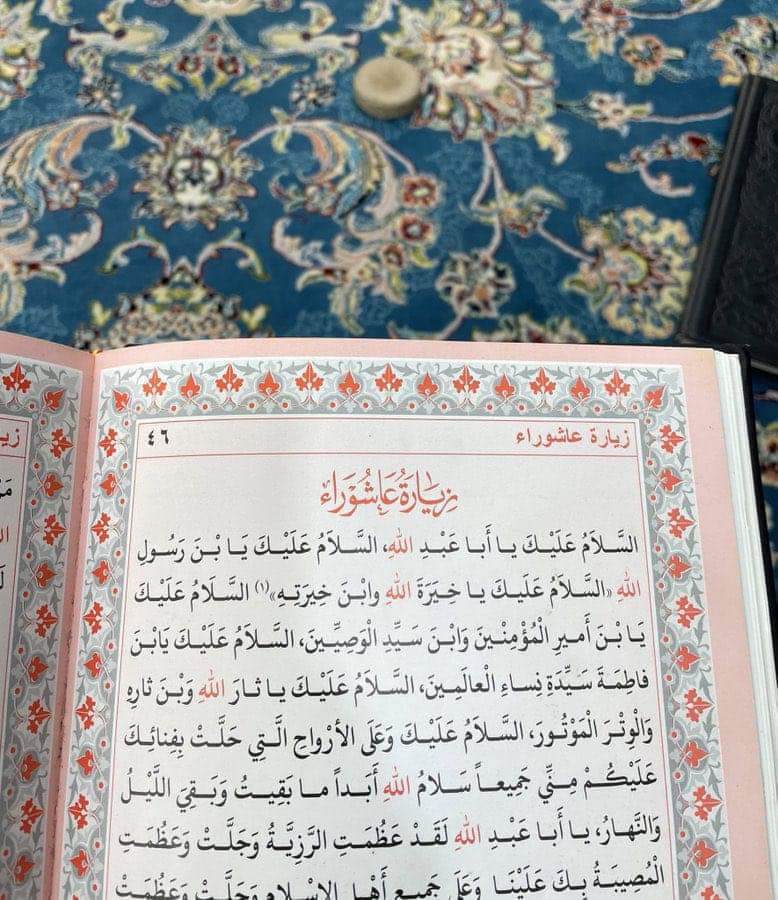 زيارة عاشوراء ٤٦
زِيَارَةُ عَاشُورَاء
السَّلَامُ عَلَيْكَ يا أَبا عَبْدِ اللهِ، السَّلَامُ عَلَيْكَ يَا بْنَ رَسُولِ
اللهِ «السَّلَامُ عَلَيْكَ يا خِيَرَةَ اللهِ وابْنَ خِيَرَتِهِ»(١) السَّلَامُ عَلَيْكَ
يَا بْنَ أَمِيرِ الْمُؤْمِنْينَ وَابْنَ سَيِّدِ الْوَصِيِّينَ، السَّلَامُ عَلَيْكَ يَابْنَ
فاطِمَةَ سَيِّدَةِ نِساءِ الْعالَمِينَ، السَّلَامُ عَلَيْكَ يا ثارَ اللهِ وَبْنَ ثارِهِ
وَالْوِتْرَ الْمَوْتُورَ، السَّلَامُ عَلَيْكَ وَعَلَى الأَرْواحِ الَّتِي حَلَّتْ بِفِنائِكَ
عَلَيْكُمْ مِنِّي جَمِيعاً سَلامُ اللهِ أَبَداً ما بَقِيتُ وَبَقِيَ اللَّيْلُ
وَالنَّهارُ، يا أَبا عَبْدِ اللهِ لَقَدْ عَظُمَتِ الرَّزِيَّةُ وَجَلَّتْ وَعَظُمَتِ
الْمُصِيبَةُ بِكَ عَلَيْنَا وَعَلَى جَمِيعِ أَهْلِ الإِسْلامِ وَجَلَّتْ وَعَظُمَتْ